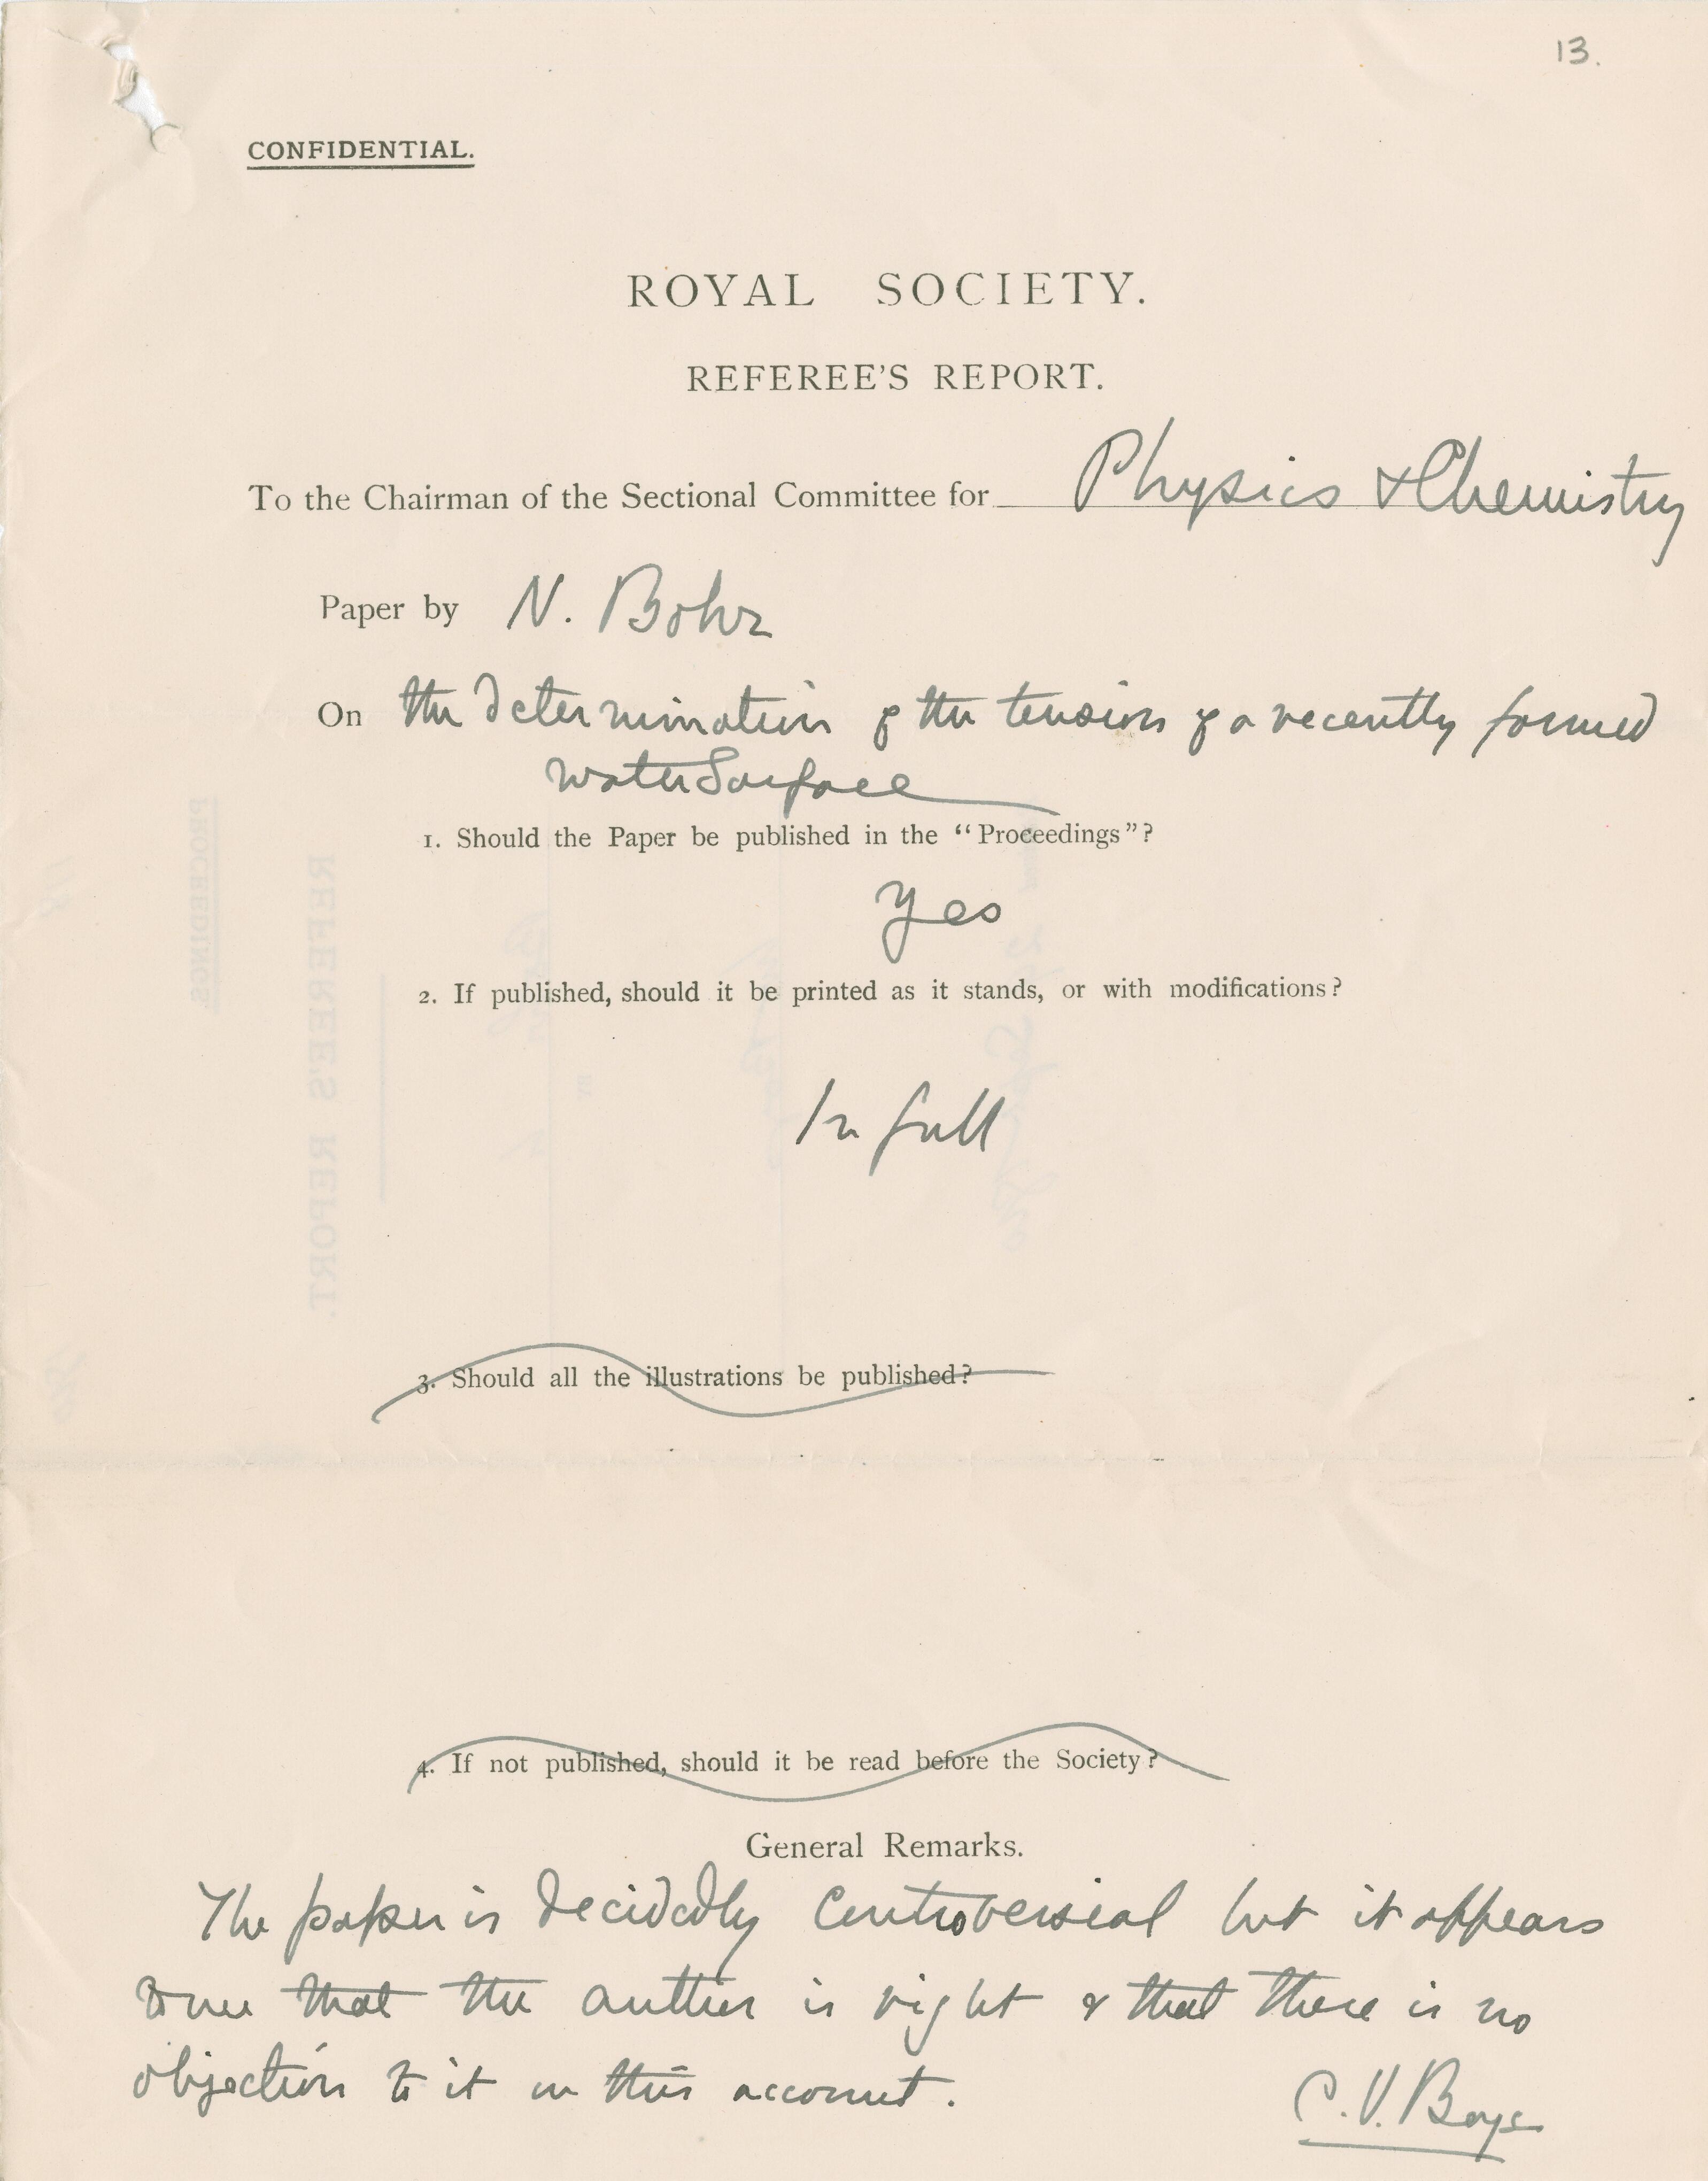 13.
CONFIDENTIAL.
ROYAL SOCIETY.
REFEREE'S REPORT.
To the Chairman of the Sectional Committee for Physics & Chemistry
Paper by N. Bohr
On the determination of the tension of a recently formed
water Surface
1. Should the Paper be published in the “Proceedings”?
Yes
2. If published, should it be printed as it stands, or with modifications?
In full
3. Should all the illustrations be published?
4. If not published, should it be read before the Society?
General Remarks.
The paper is decidedly controversial but it appears
to me that the author is right & that there is no
objection to it on this account.
C. V. Boys
PROCEEDINGS.
REFEREE'S REPORT.